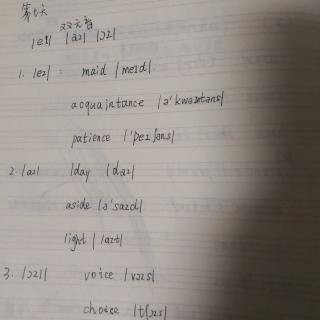 第七天
双元音
|eɪ| |aɪ| |ɔɪ|
1. |eɪ| : maid |meɪd|.
acquaintance |ə'kweɪntəns|
patience |'peɪʃəns|
2. |aɪ| day |daɪ|
aside |ə'saɪd|
light |laɪt|
3. |ɔɪ| voice |vɔɪs|
choice |tʃɔɪs|